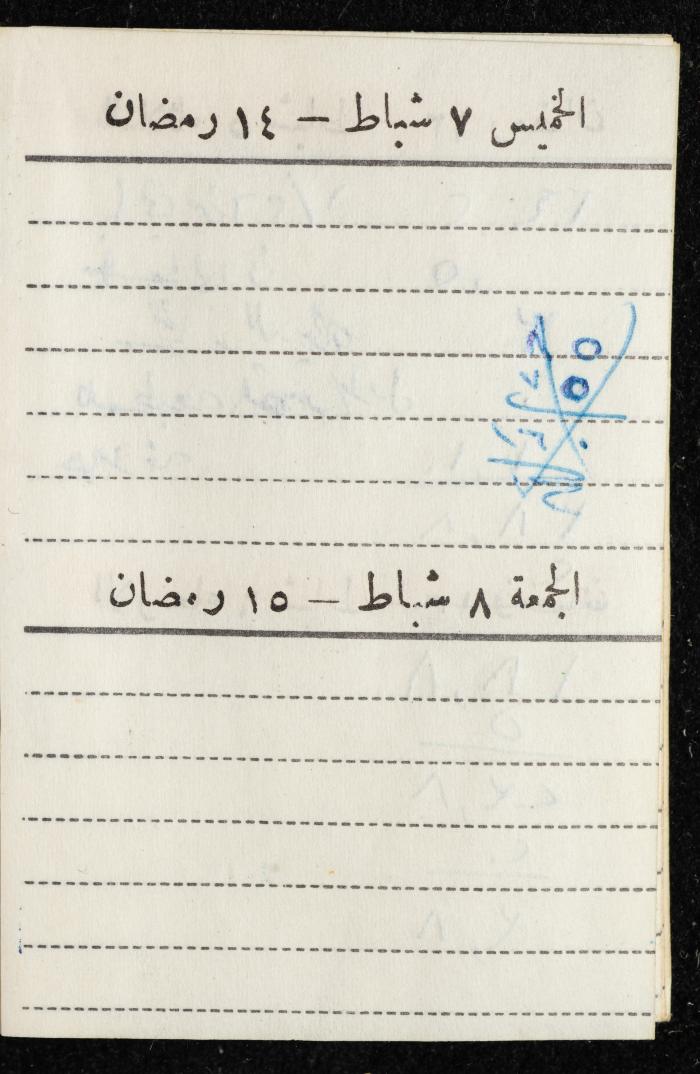 الخميس ٧ شباط – ١٤ رمضان
الجمعة ٨ شباط – ١٥ رمضان